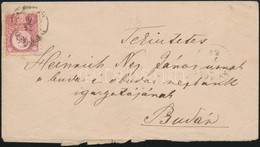 Tekintetes
Heinrich Nep. János urnak
a budai s óbudai népbank
igazgatójának
Budán